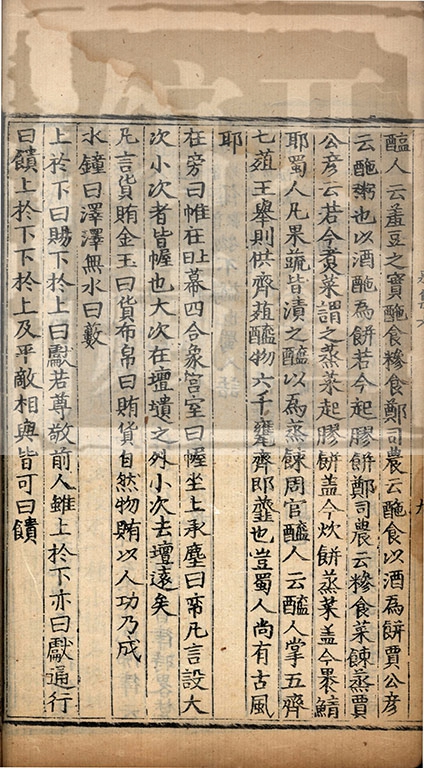 醢人云羞豆之實酏食糝食鄭司農云酏食以酒為餅賈公彥
云酏粥也以酒酏為餅若今起膠餅鄭司農云糝食菜餗蒸賈
公彥云若今煮菜謂之蒸菜起膠餅盖今炊餅蒸菜盖今裹鮓
耶蜀人凡果蔬皆漬之醯以為蒸餗周官醯人云醯人掌五齊
七葅王舉則供齊葅醯物六十甕齊即虀也豈蜀人尚有古風
耶
在旁曰帷在上曰幕四合象宮室曰幄坐上承塵曰帟凡言設大
次小次者皆幄也大次在壇壝之外小次去壇遠矣
凡言貨賄金玉曰貨布帛曰賄貨自然物賄以人功乃成
水鐘曰澤澤無水曰藪
上於下曰賜下於上曰獻若尊敬前人雖上於下亦曰獻通行
曰饋上於下下於上及平敵相與皆可曰饋